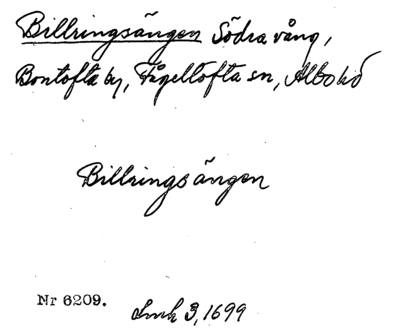 Billringsängen Södra vång,
Bontofta by, Fågeltofta sn, Albo hd
Billringsängen
Nr 6209.
Lmk 3, 1699